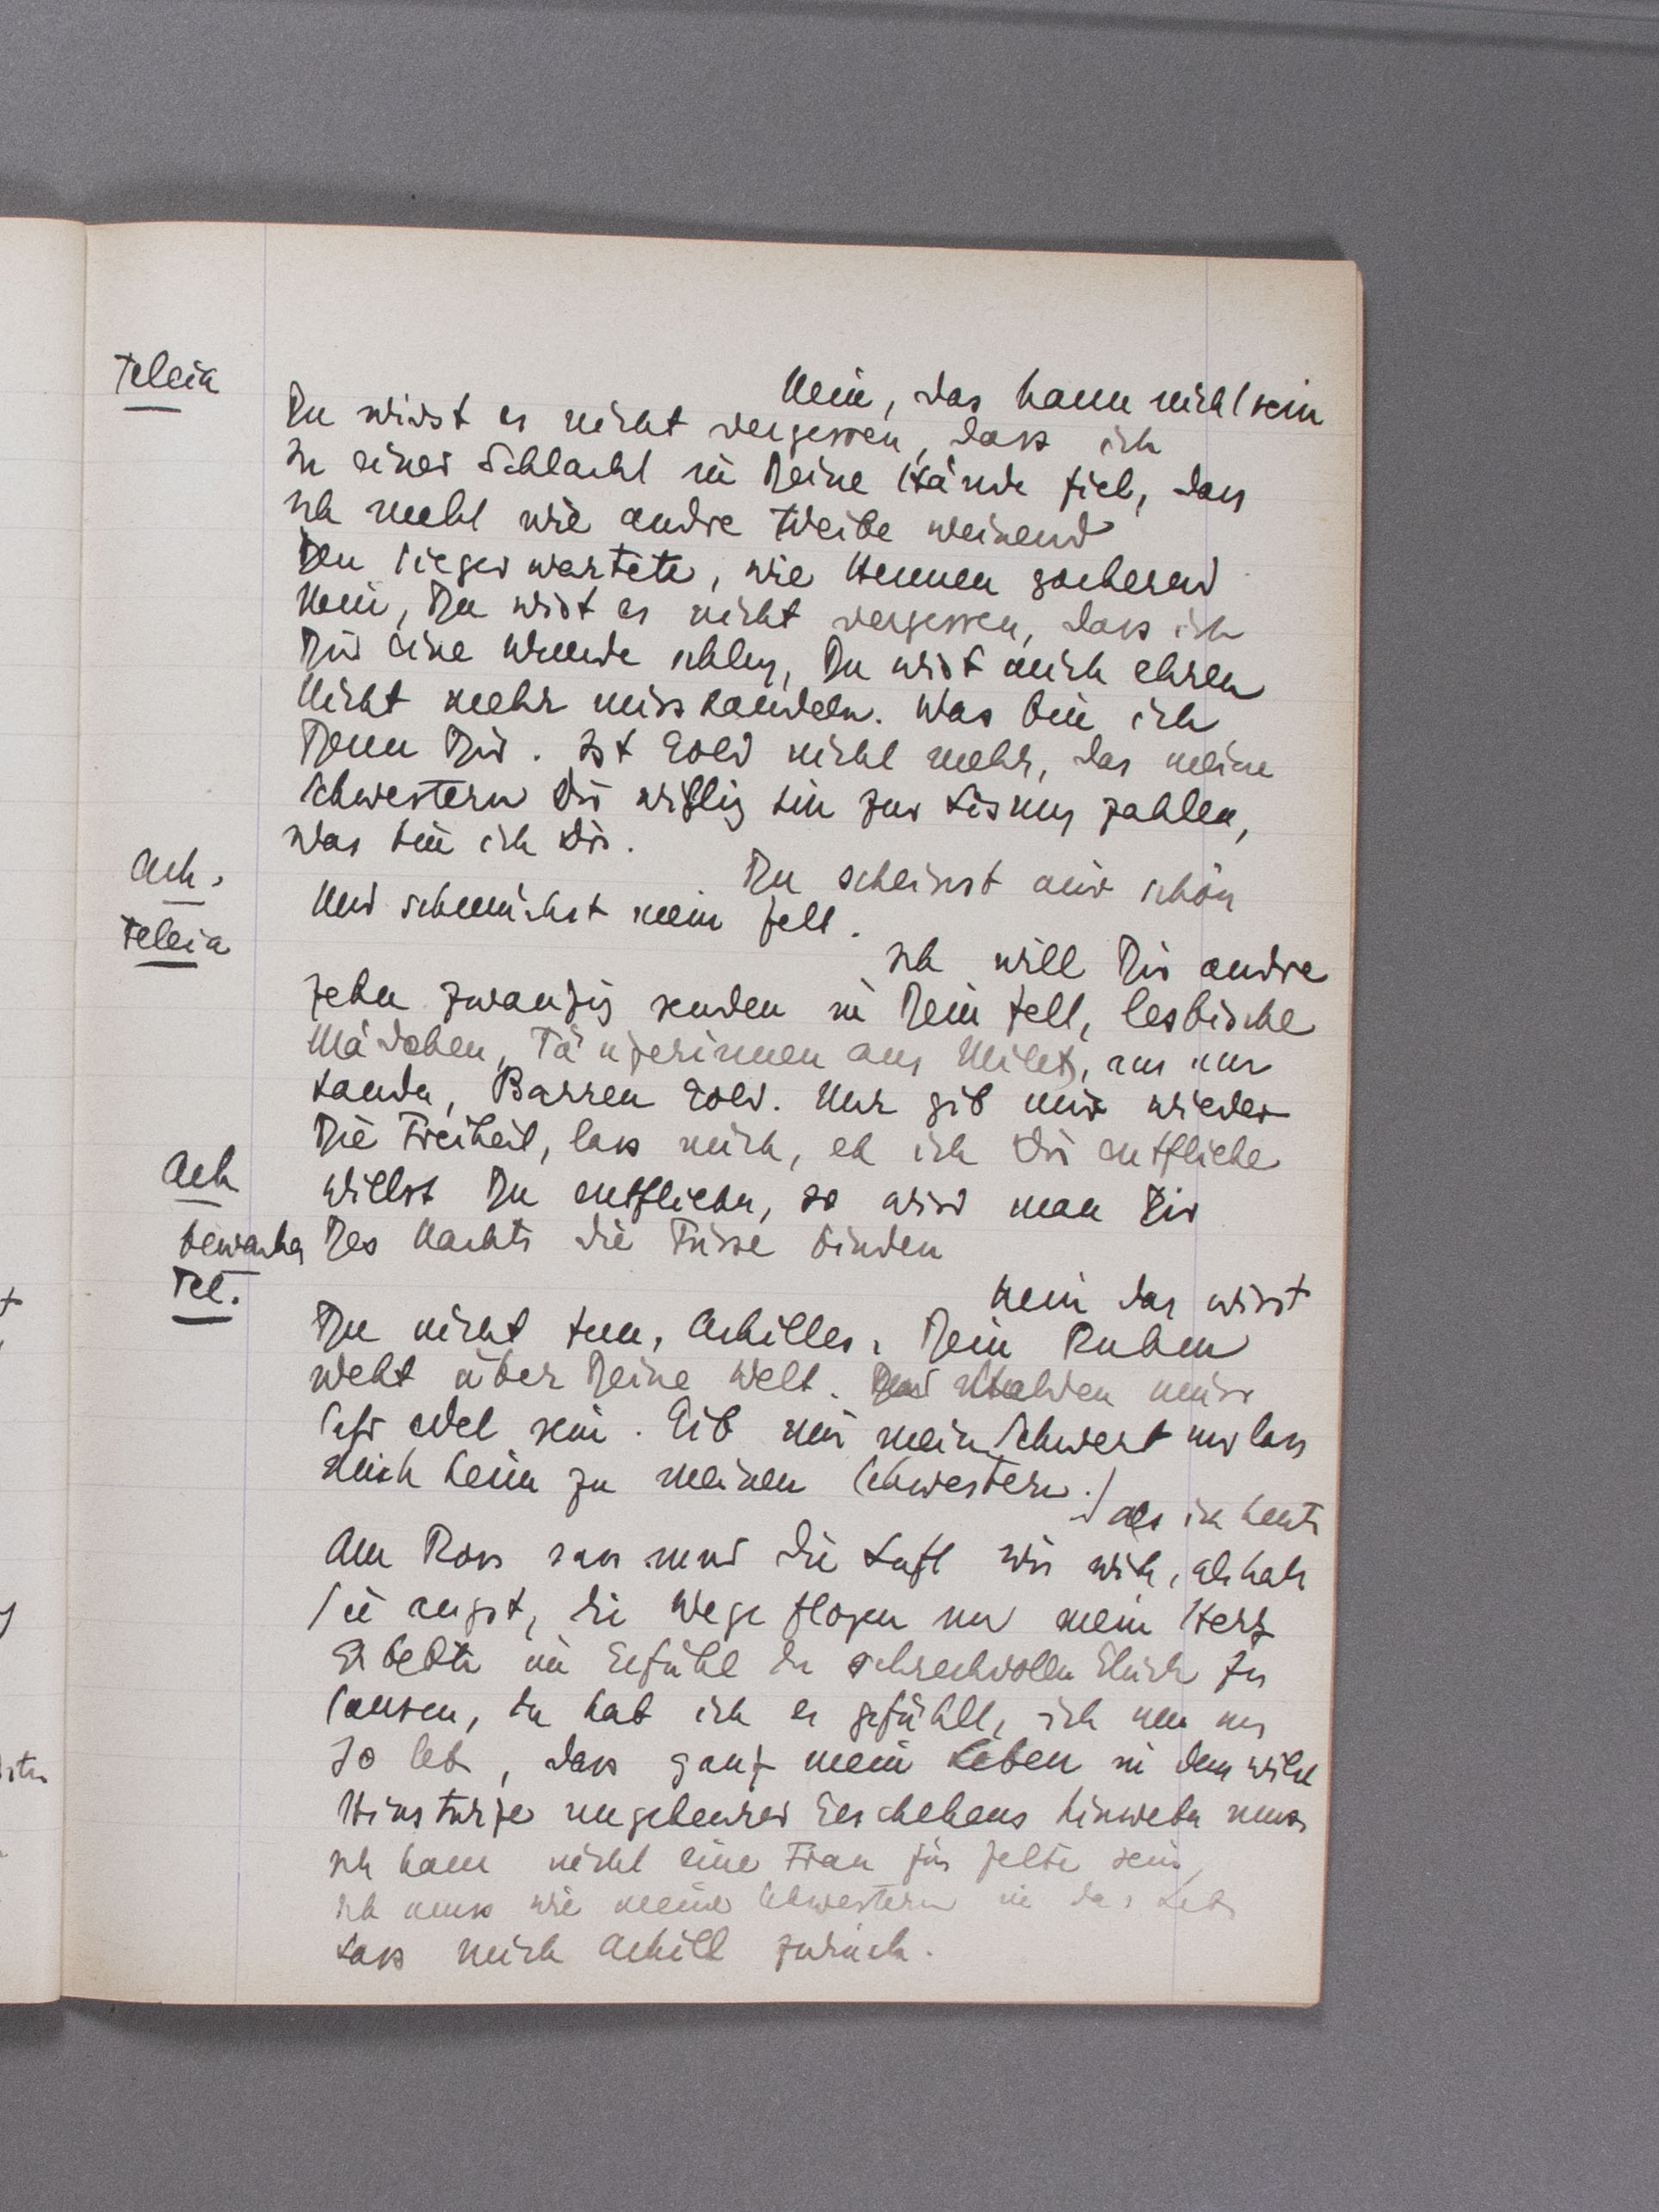 Teleia
Nein, das kann nicht sein
Du wirst es nicht vergessen, dass ich
In einer Schlacht in Deine Hände fiel, dass
Ich nicht wie andre Weibe weinend
Den Sieger wartete, wie Hennen gackernd
Nein, Du wirst es nicht vergessen, dass ich
Dir eine Wunde schlug, Du wirst mich ehren
Nicht mehr misshandeln. Was bin ich
Denn Dir. Ist Gold nicht mehr, das meine
Schwestern Dir willig hin zur Lösung zahlen,
Was bin ich Dir.
Ach.
Du scheinst mir schön
Und schmückst mein Zelt.
Teleia
Ich will Dir andre
Zehn zwanzig senden in Dein Zelt, lesbische
Mädchen, Tänzerinnen aus Milet, aus
Lande, Barren Gold. Nur gib mir wieder
Die Freiheit, lass mich, eh ich Dir entfliehe
Ach
Willst Du entfliehn, so wird man Dir
bewachen Des Nachts die Füsse binden
Tel.
Nein das wirst
Du nicht tun, Achilles. Dein Ruhm
weht über Deine Welt. Helden muss
sehr edel sein. Gib mir mein Schwert und lass
Mich heim zu meinen Schwestern. / als ich heute
Am Ross sass und die Luft wir wich, als hab
Sie angst, die Wege flogen und mein Herz
Erbebte im Gefühl des schreckvollen Glücks zu
sausen, da hab ich es gefühlt, ich nur
So leb, dass ganz mein Leben in dem wilden
Hinsturze ungeheurer Geschehens hinwehn muss
Ich kann nicht eine Frau für Zelte sein,
Ich muss wie meine Schwestern in das Leben
Lass mich Achill zurück.